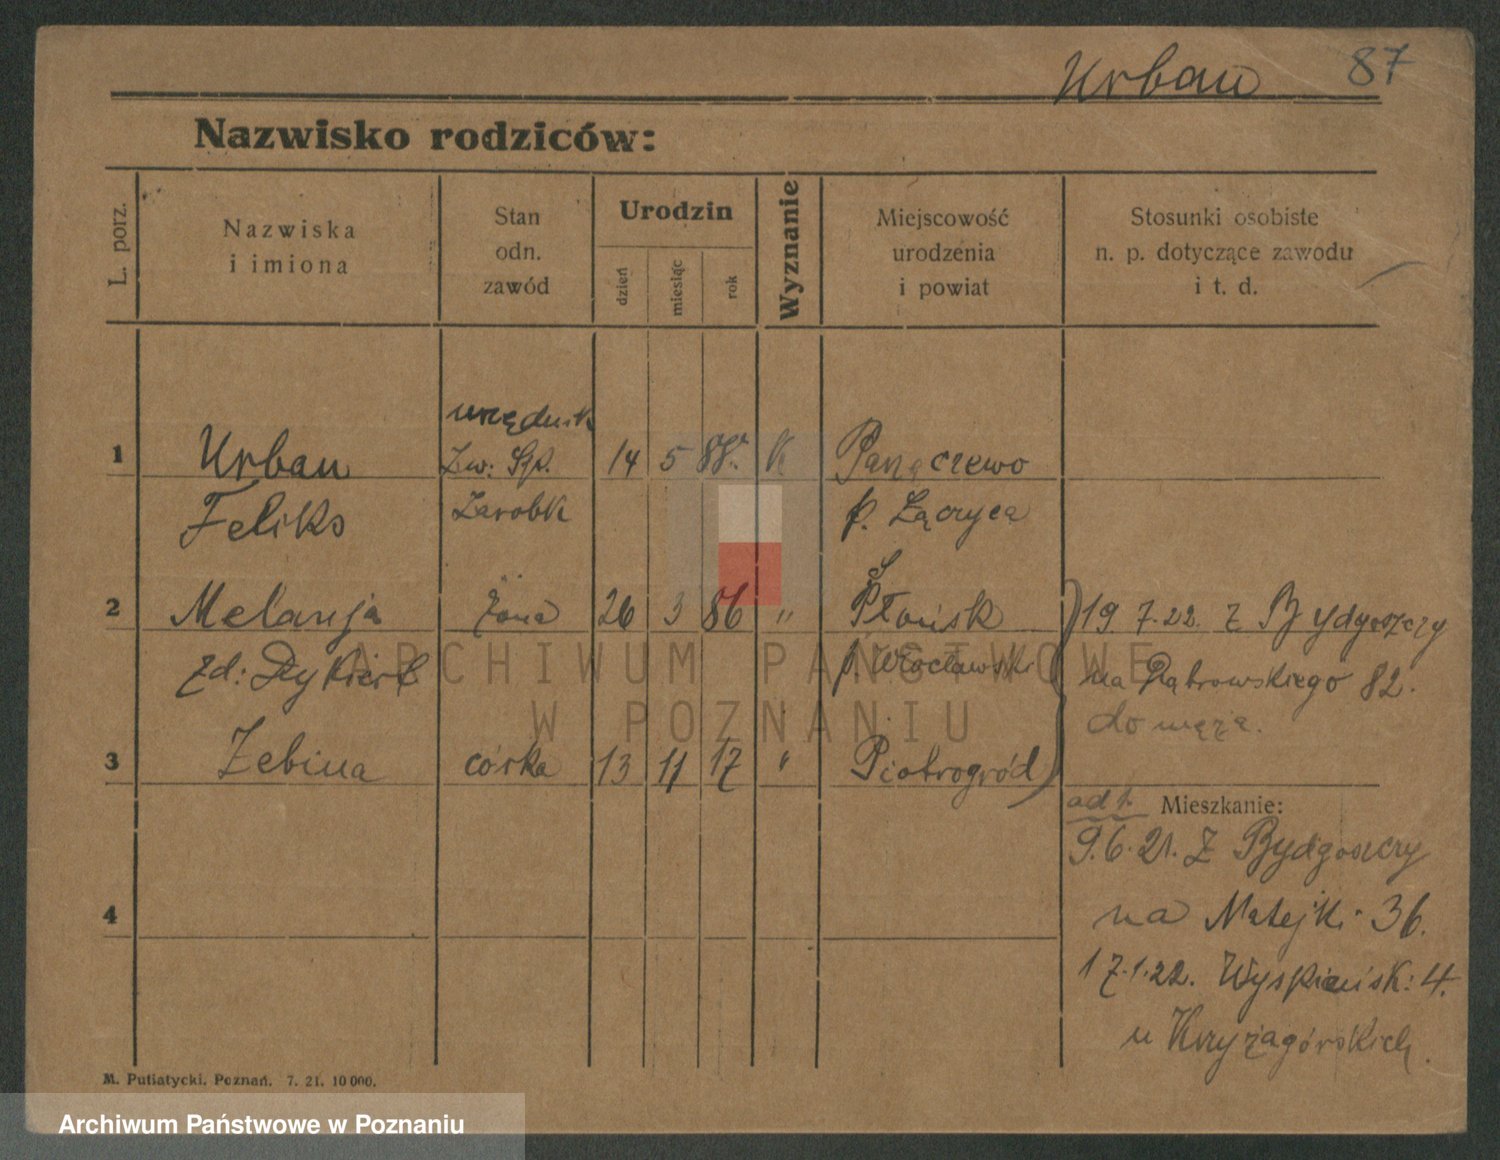 Urban 87
Nazwisko rodziców:
L. porz.
Nazwiska
i imiona
Stan
odn.
zawód
Urodzin
dzień
miesiąc
rok
Wyznanie
Miejscowość
urodzenia
i powiat
Stosunki osobiste
n. p. dotyczące zawodu
i t. d.
urzędnik
1 Urban Zw: Sp. 14 5 88. K
Feliks Zarobk p. Łączyca
2 Melanja żona 26 3 86 " Płońsk
19.7.22. z Bydgoszczy
zd: p. Wrocławski
na Dąbrowskiego 82.
do męża.
3 Zebina córka 13 11 17 " Piotrogród
adr. Mieszkanie:
9.6.21. z Bydgoszczy
4
na Matejki 36.
17.1.22. Wyspiańsk: 4.
u
M. Putiatycki, Poznań. 7. 21. 10 000.
ARCHIWUM PAŃSTWOWE
W POZNANIU
Archiwum Państwowe w Poznaniu